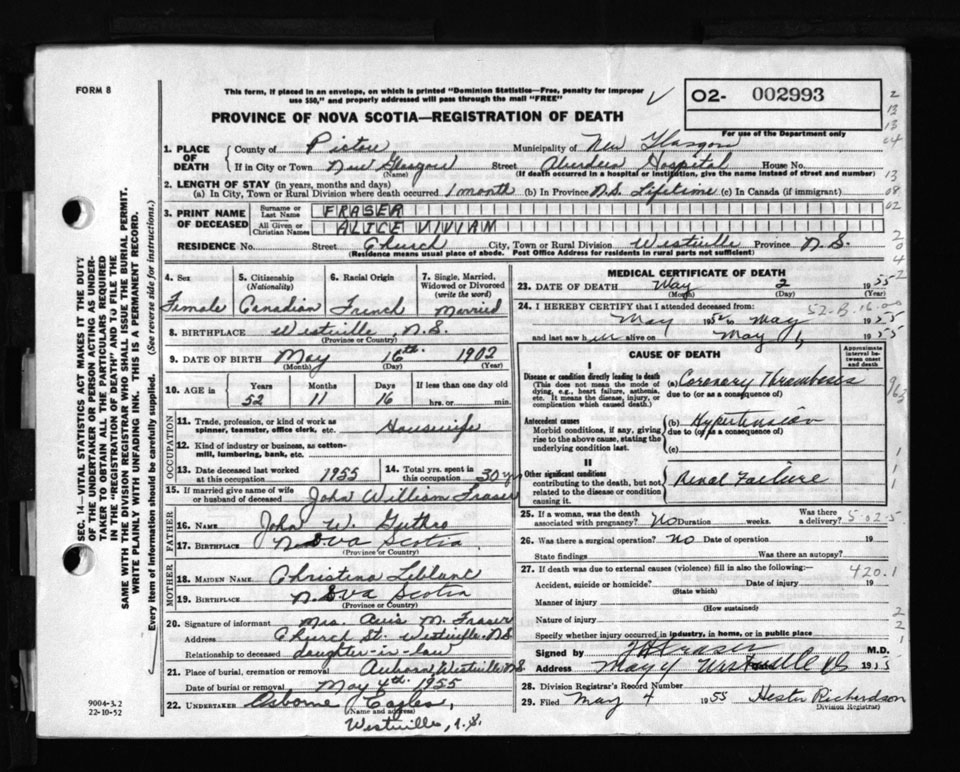 FORM 8
This form, if placed in an envelope, on which is printed "Dominion Statistics—Free, penalty for improper
use $50," and properly addressed will pass through the mail "FREE"
PROVINCE OF NOVA SCOTIA—REGISTRATION OF DEATH
02- 002993
For use of the Department only
SEC. 14—VITAL STATISTICS ACT MAKES IT THE DUTY
OF THE UNDERTAKER OR PERSON ACTING AS UNDER-
TAKER TO OBTAIN ALL THE PARTICULARS REQUIRED
IN THE "REGISTRATION OF DEATH" AND TO FILE THE
SAME WITH THE DIVISION REGISTRAR WHO SHALL ISSUE THE BURIAL PERMIT.
WRITE PLAINLY WITH UNFADING INK. THIS IS A PERMANENT RECORD.
Every item of information should be carefully supplied. (See reverse side for instructions.)
1. PLACE OF DEATH County of Pictou Municipality of New Glasgow
If in City or Town New Glasgow (Name) Street Aberdeen Hospital House No.
(If death occurred in a hospital or institution, give the name instead of street and number)
2. LENGTH OF STAY (in years, months and days)
(a) In City, Town or Rural Division where death occurred 1 month (b) In Province N.S. Lifetime (c) In Canada (if immigrant)
3. PRINT NAME OF DECEASED Surname or Last Name FRASER
All Given or Christian Names ALICE VIVIAN
RESIDENCE No. Street Church City, Town or Rural Division Westville Province N.S.
(Residence means usual place of abode. Post Office Address for residents in rural parts not sufficient)
4. Sex Female
5. Citizenship (Nationality) Canadian
6. Racial Origin French
7. Single, Married, Widowed or Divorced (write the word) Married
8. BIRTHPLACE Westville, N.S.
(Province or Country)
9. DATE OF BIRTH May 16th 1902
(Month) (Day) (Year)
10. AGE in Years 52 Months 11 Days 16 If less than one day old hrs. or min.
OCCUPATION
11. Trade, profession, or kind of work as spinner, teamster, office clerk, etc. Housewife
12. Kind of industry or business, as cotton-mill, lumbering, bank, etc.
13. Date deceased last worked at this occupation 1955
14. Total yrs. spent in this occupation 30 yrs
15. If married give name of wife or husband of deceased John William Fraser
FATHER
16. NAME John W. Guthro
17. BIRTHPLACE Nova Scotia
(Province or Country)
MOTHER
18. MAIDEN NAME Christina Leblanc
19. BIRTHPLACE Nova Scotia
(Province or Country)
20. Signature of informant Mrs. Avis M. Fraser
Address Church St. Westville N.S.
Relationship to deceased daughter-in-law
21. Place of burial, cremation or removal Auburn Westville N.S.
Date of burial or removal May 4th 1955
22. UNDERTAKER Osborne Eagles,
(Name and address)
Westville, N.S.
MEDICAL CERTIFICATE OF DEATH
23. DATE OF DEATH May 2 1955
(Month) (Day) (Year)
24. I HEREBY CERTIFY that I attended deceased from:
May 1952 to May 1955
and last saw her alive on May 1, 1955
52-B-16-00
CAUSE OF DEATH
Approximate interval between onset and death
I
Disease or condition directly leading to death
(This does not mean the mode of dying, e.g., heart failure, asthenia, etc. It means the disease, injury, or complication which caused death.)
(a) Coronary Thrombosis
due to (or as a consequence of)
Antecedent causes
Morbid conditions, if any, giving rise to the above cause, stating the underlying condition last.
(b) Hypertension
due to (or as a consequence of)
(c)
II
Other significant conditions
contributing to the death, but not related to the disease or condition causing it.
Renal Failure
25. If a woman, was the death associated with pregnancy? No Duration weeks. Was there a delivery?
5-02-5
26. Was there a surgical operation? No Date of operation 19
State findings Was there an autopsy?
27. If death was due to external causes (violence) fill in also the following:
420.1
Accident, suicide or homicide? Date of injury 19
(State which)
Manner of injury
(How sustained)
Nature of injury
Specify whether injury occurred in industry, in home, or in public place
Signed by Fraser M.D.
Address May 4 Westville NS 1955
28. Division Registrar's Record Number
29. Filed May 4 1955 Hester Richardson
Division Registrar)
9004-3.2
22-10-52